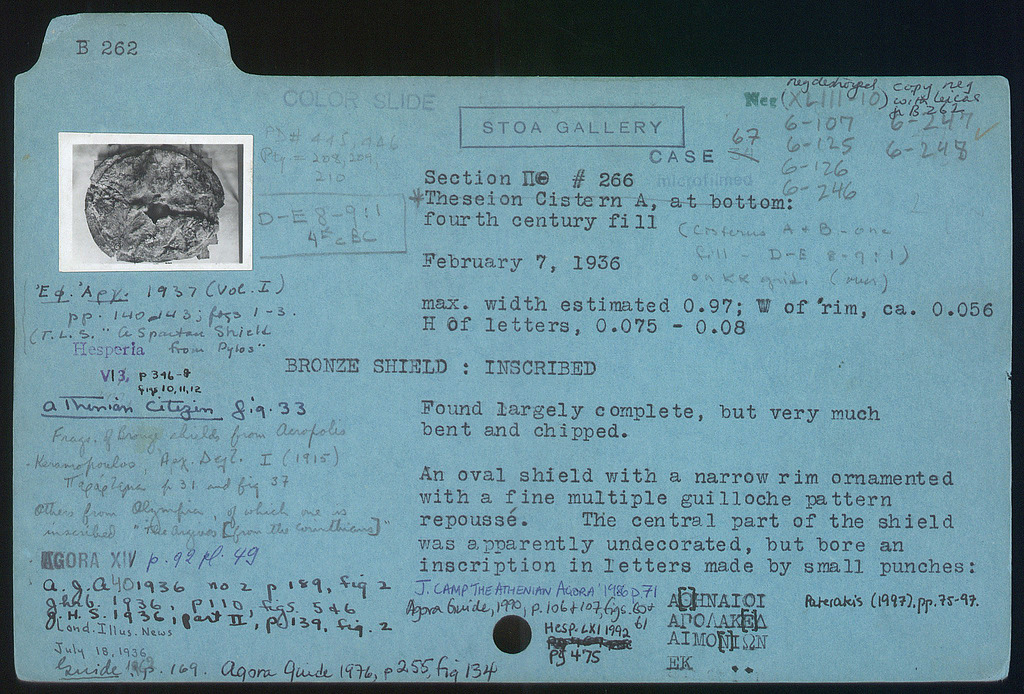 B 262
COLOR SLIDE
STOA GALLERY
CASE 67
neg destroyed
Neg (XLIII-10)
copy neg
with leica
B 262
6-107 6-247
6-125 6-248
6-126
6-246
PD# 445, 446
208, 209,
210
microfilmed
Section ΠΘ # 266
*Theseion Cistern A, at bottom:
fourth century fill
D-E 8-9:1
BC
(cisterns A + B - one
fill - D-E 8-9:1)
on KK grid. (over)
February 7, 1936
max. width estimated 0.97; W of rim, ca. 0.056
H of letters, 0.075 - 0.08
BRONZE SHIELD : INSCRIBED
Found largely complete, but very much
bent and chipped.
An oval shield with a narrow rim ornamented
with a fine multiple guilloche pattern
repoussé. The central part of the shield
was apparently undecorated, but bore an
inscription in letters made by small punches:
ΑΘΗΝΑΙΟΙ
ΑΠΟΛΑΚΕΔ
ΑΙΜΟΝΙΩΝ
ΕΚ ..
'Εφ. Αρχ. 1937 (Vol. I)
pp. 140-143; figs 1-3.
(T.L.S. "A Spartan Shield
from Pylos"
Hesperia
VI3, p 346-8
figs 10, 11, 12
Athenian Citizen fig. 33
Frags. of Bronze shields from Acropolis
Keramopoullos, Αρχ. Δελτ. I (1915)
p 31 and fig 37
Others from Olympia, of which one is
inscribed "The Argives [from the Corinthians]"
AGORA XIV p. 92 pl. 49
A.J.A 40 1936 no 2 p 189, fig 2
1936, p 110, figs. 5+6
J.H.S. 1936, part II, p 139, fig. 2
Lond. Illus. News
July 18, 1936
Guide p. 169. Agora Guide 1976, p 255, fig 134
J. CAMP THE ATHENIAN AGORA 1986 p. 71
Agora Guide, 1990, p. 106 + 107, figs. 60+
61
Hesp. LXI 1992
pg 475
Paterakis (1997), pp. 75-97.